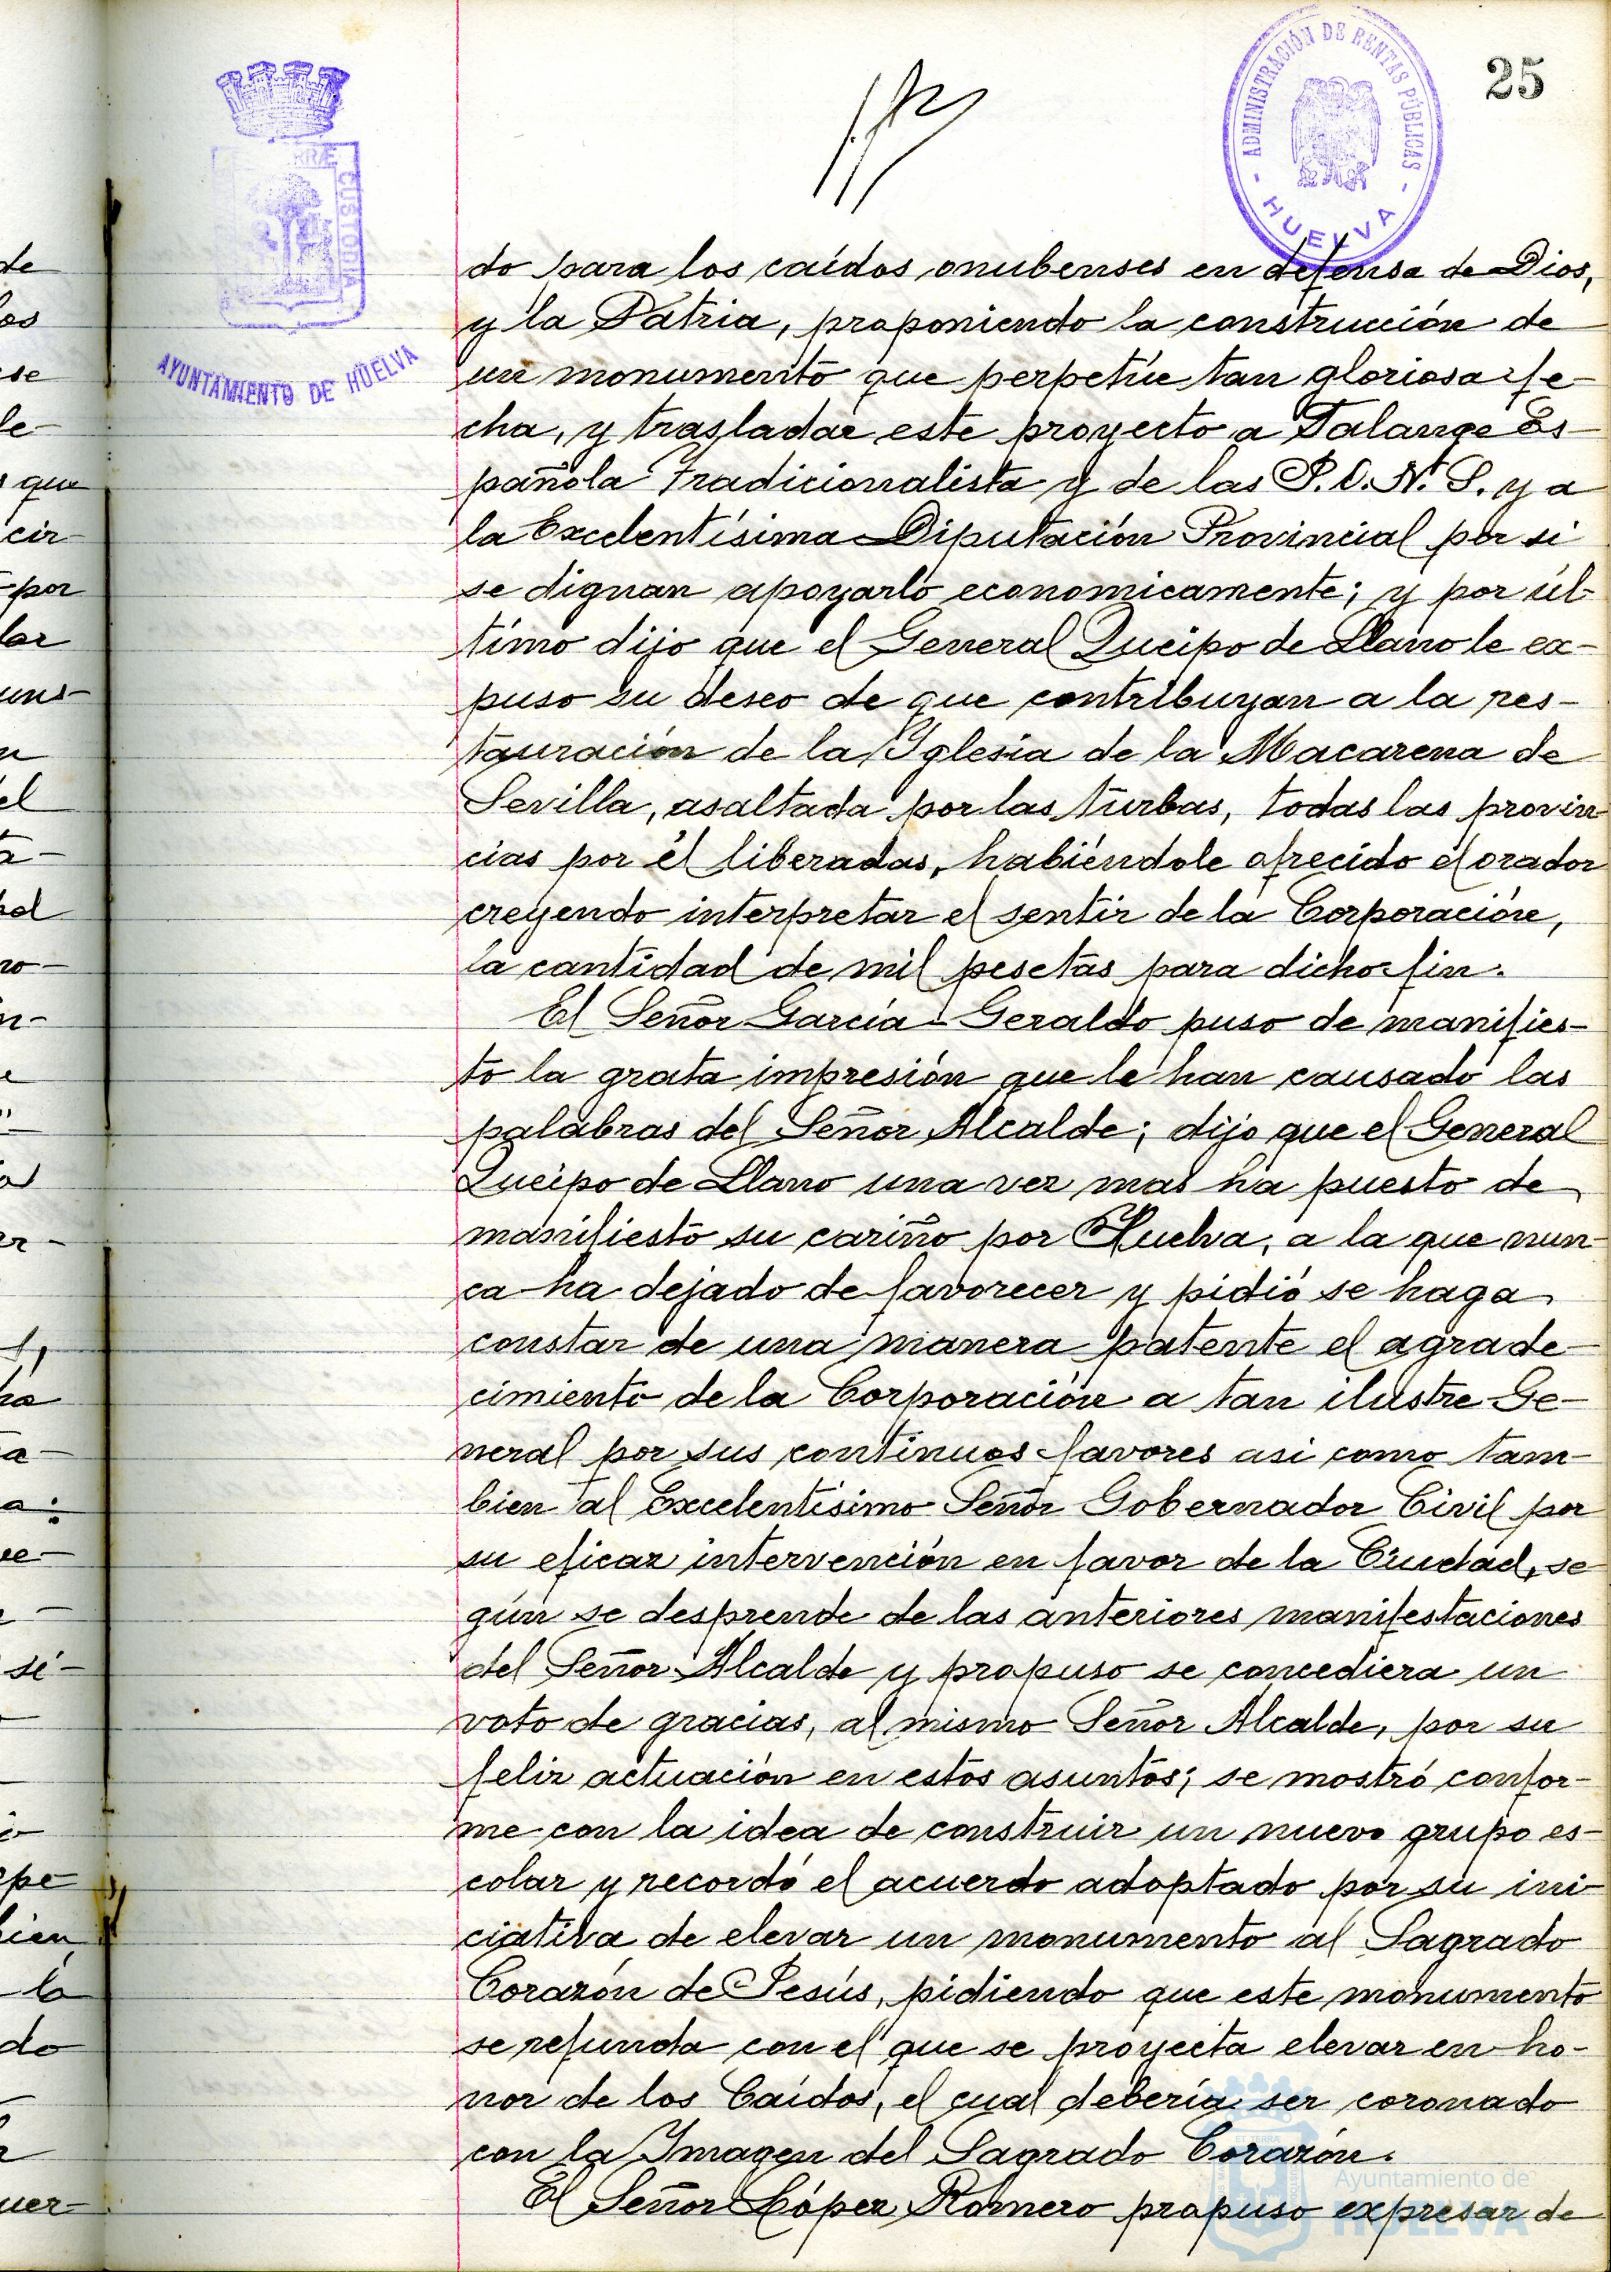 25
ADMINISTRACIÓN DE RENTAS PÚBLICAS
- HUELVA -
CUSTODIA
AYUNTAMIENTO DE HUELVA
do para los caídos onubenses en defensa de Dios,
y la Patria, proponiendo la construcción de
un monumento que perpetúe tan gloriosa fe-
cha, y trasladar este proyecto a Falange Es-
pañola Tradicionalista y de las J.O.N.S. y a
la Excelentísima Diputación Provincial por si
se dignan apoyarlo economicamente; y por úl-
timo dijo que el General Queipo de Llano le ex-
puso su deseo de que contribuyan a la res-
tauración de la Iglesia de la Macarena de
Sevilla, asaltada por las turbas, todas las provin
cias por él liberadas, habiéndole ofrecido el orador
creyendo interpretar el sentir de la Corporación,
la cantidad de mil pesetas para dicho fin.
El Señor García-Geraldo puso de manifies-
to la grata impresión que le han causado las
palabras del Señor Alcalde; dijo que el General
Queipo de Llano una vez mas ha puesto de
manifiesto su cariño por Huelva, a la que nun-
ca ha dejado de favorecer y pidió se haga
constar de una manera patente el agrade-
cimiento de la Corporación a tan ilustre Ge-
neral por sus continuos favores asi como tam-
bien al Excelentísimo Señor Gobernador Civil por
su eficaz intervención en favor de la Ciudad, se
gún se desprende de las anteriores manifestaciones
del Señor Alcalde y propuso se concediera un
voto de gracias, al mismo Señor Alcalde, por su
feliz actuación en estos asuntos; se mostró confor-
me con la idea de construir un nuevo grupo es-
colar y recordó el acuerdo adoptado por su ini-
ciativa de elevar un monumento al Sagrado
Corazón de Jesús, pidiendo que este monumento
se refunda con el que se proyecta elevar en ho-
nor de los Caídos, el cual debería ser coronado
con la Imagen del Sagrado Corazón.
El Señor López Romero propuso expresar de
Ayuntamiento de
HUELVA